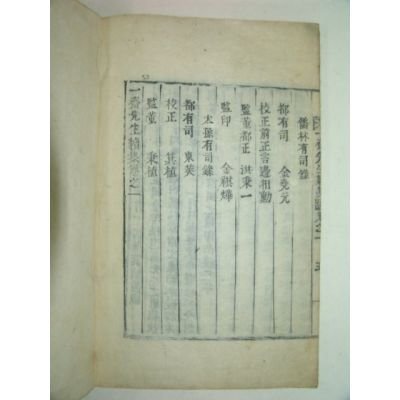 儒林有司錄
都有司 金堯元
校正前正言邊相勳
監董都正 洪秉一
監印 金祺燁
本孫有司錄
都有司 東英
校正 箕植
監董 秉植
一齋先生續集卷之一